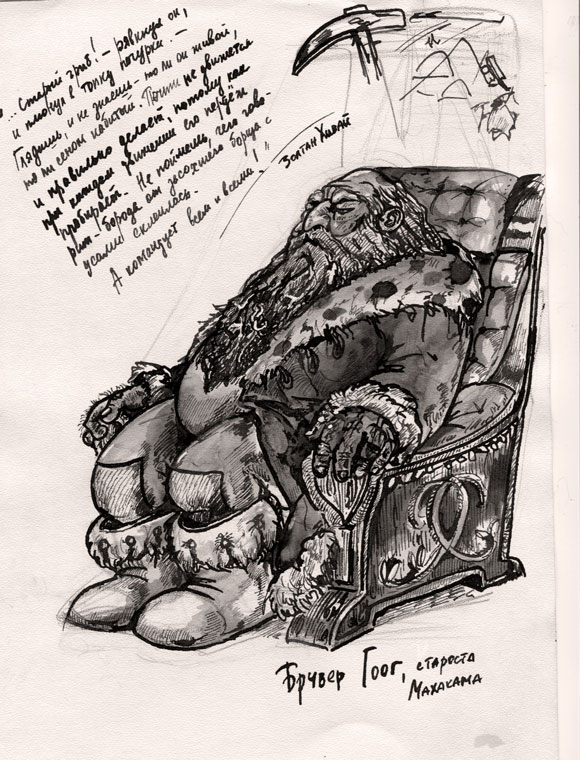 ... Старый гриб! - рявкнул он,
и плюнул в топку печурки. -
Глядишь, и не знаешь - то ли он живой,
то ли сеном набитый. Почти не движется
и правильно делает, потому как
при каждом движении его пердёж
пробирает. Не поймешь, чего гово-
рит - борода от засохшего борща с
усами склеилась.
А командует всем и всеми!"
Золтан Хивай
Брувер Гоог, староста
Махакама